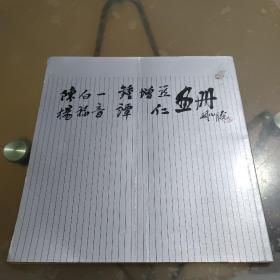 陳白一 鍾增亚 画册
楊福音 譚仁